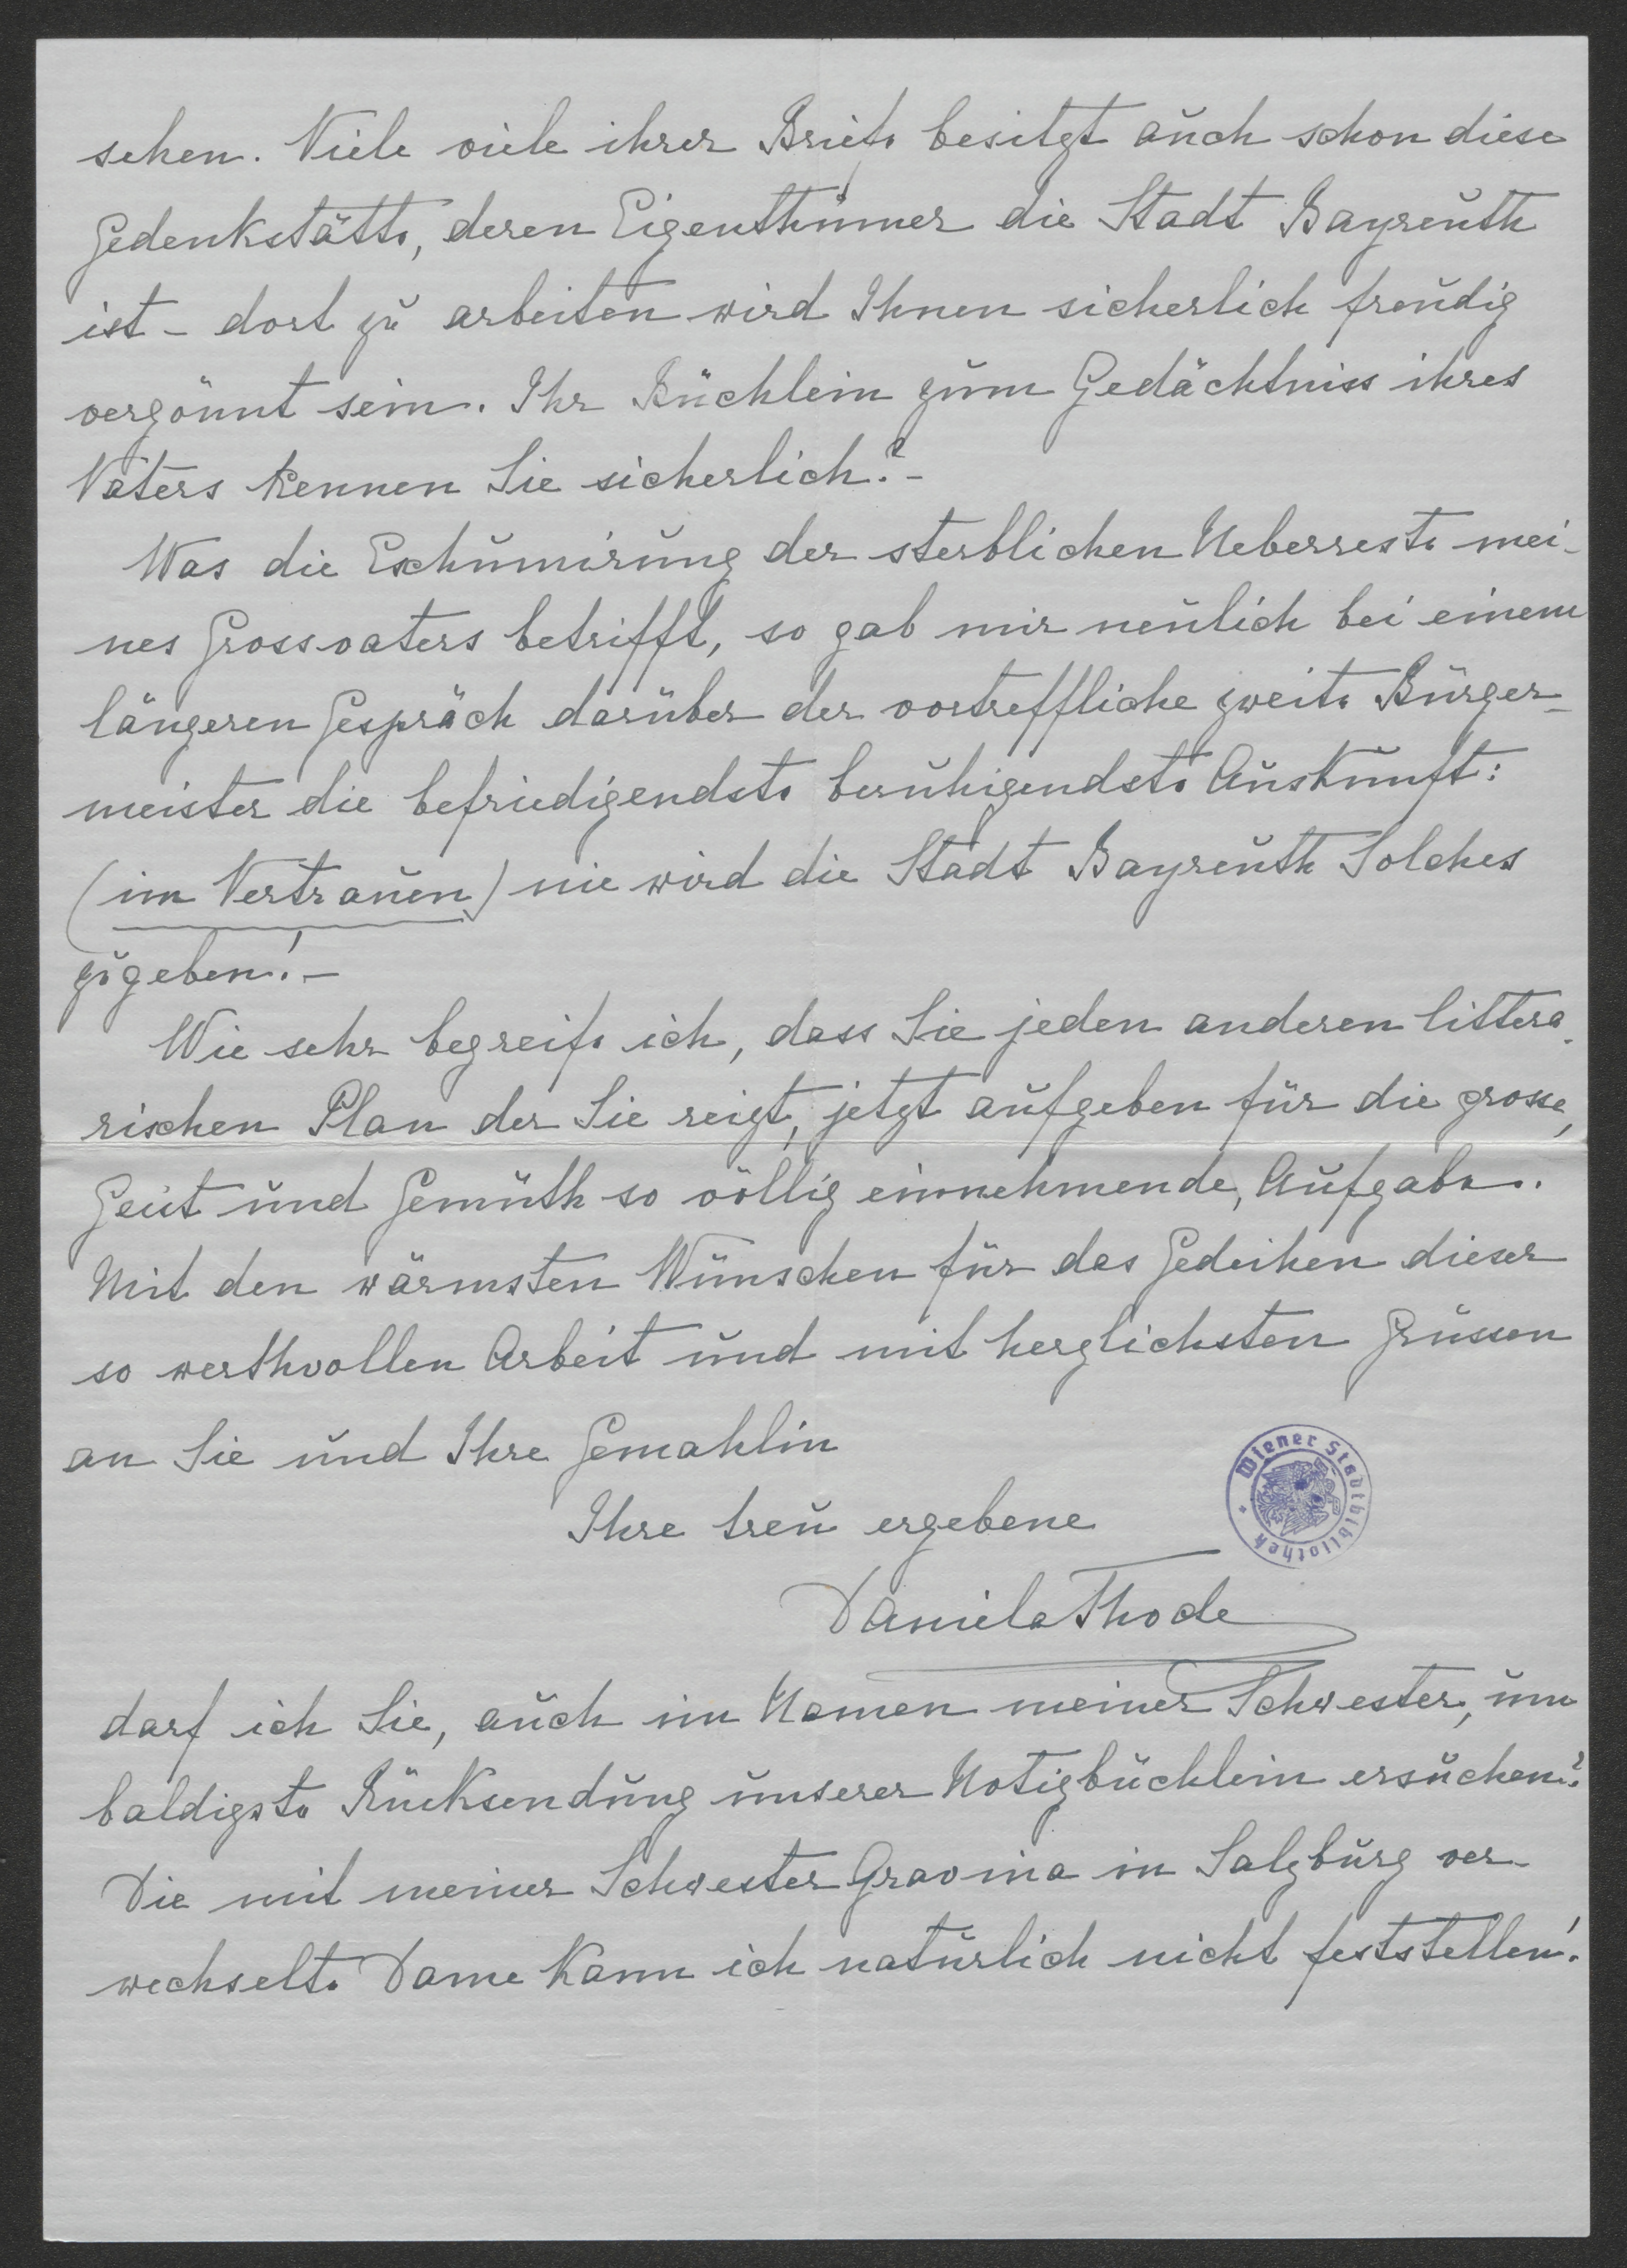 sehen. Viele viele ihrer Briefe besitzt auch schon diese
Gedenkstätte, deren Eigenthümer die Stadt Bayreuth
ist - dort zu arbeiten wird Ihnen sicherlich freudig
vergönnt sein. Ihr Büchlein zum Gedächtniss ihres
Vaters kennen Sie sicherlich? -
Was die Exhumirung der sterblichen Ueberreste mei-
nes Grossvaters betrifft, so gab mir neulich bei einem
längeren Gespräch darüber der vortreffliche zweite Bürger-
meister die befriedigendste beruhigendste Auskunft:
(im Vertrauen) nie wird die Stadt Bayreuth Solches
zugeben! -
Wie sehr begreife ich, dass Sie jeden anderen littera-
rischen Plan der Sie reizt, jetzt aufgeben für die grosse,
Geist und Gemüth so völlig einnehmende, Aufgabe.
Mit den wärmsten Wünschen für das Gedeihen dieser
so werthvollen Arbeit und mit herzlichsten Grüssen
an Sie und Ihre Gemahlin
Ihre treu ergebene
Wiener Stadtbibliothek
Daniela Thode
darf ich Sie, auch im Namen meiner Schwester, um
baldigste Rücksendung unserer Notizbüchlein ersuchen?
Die mit meiner Schwester Gravina in Salzburg ver-
wechselte Dame kann ich natürlich nicht feststellen!